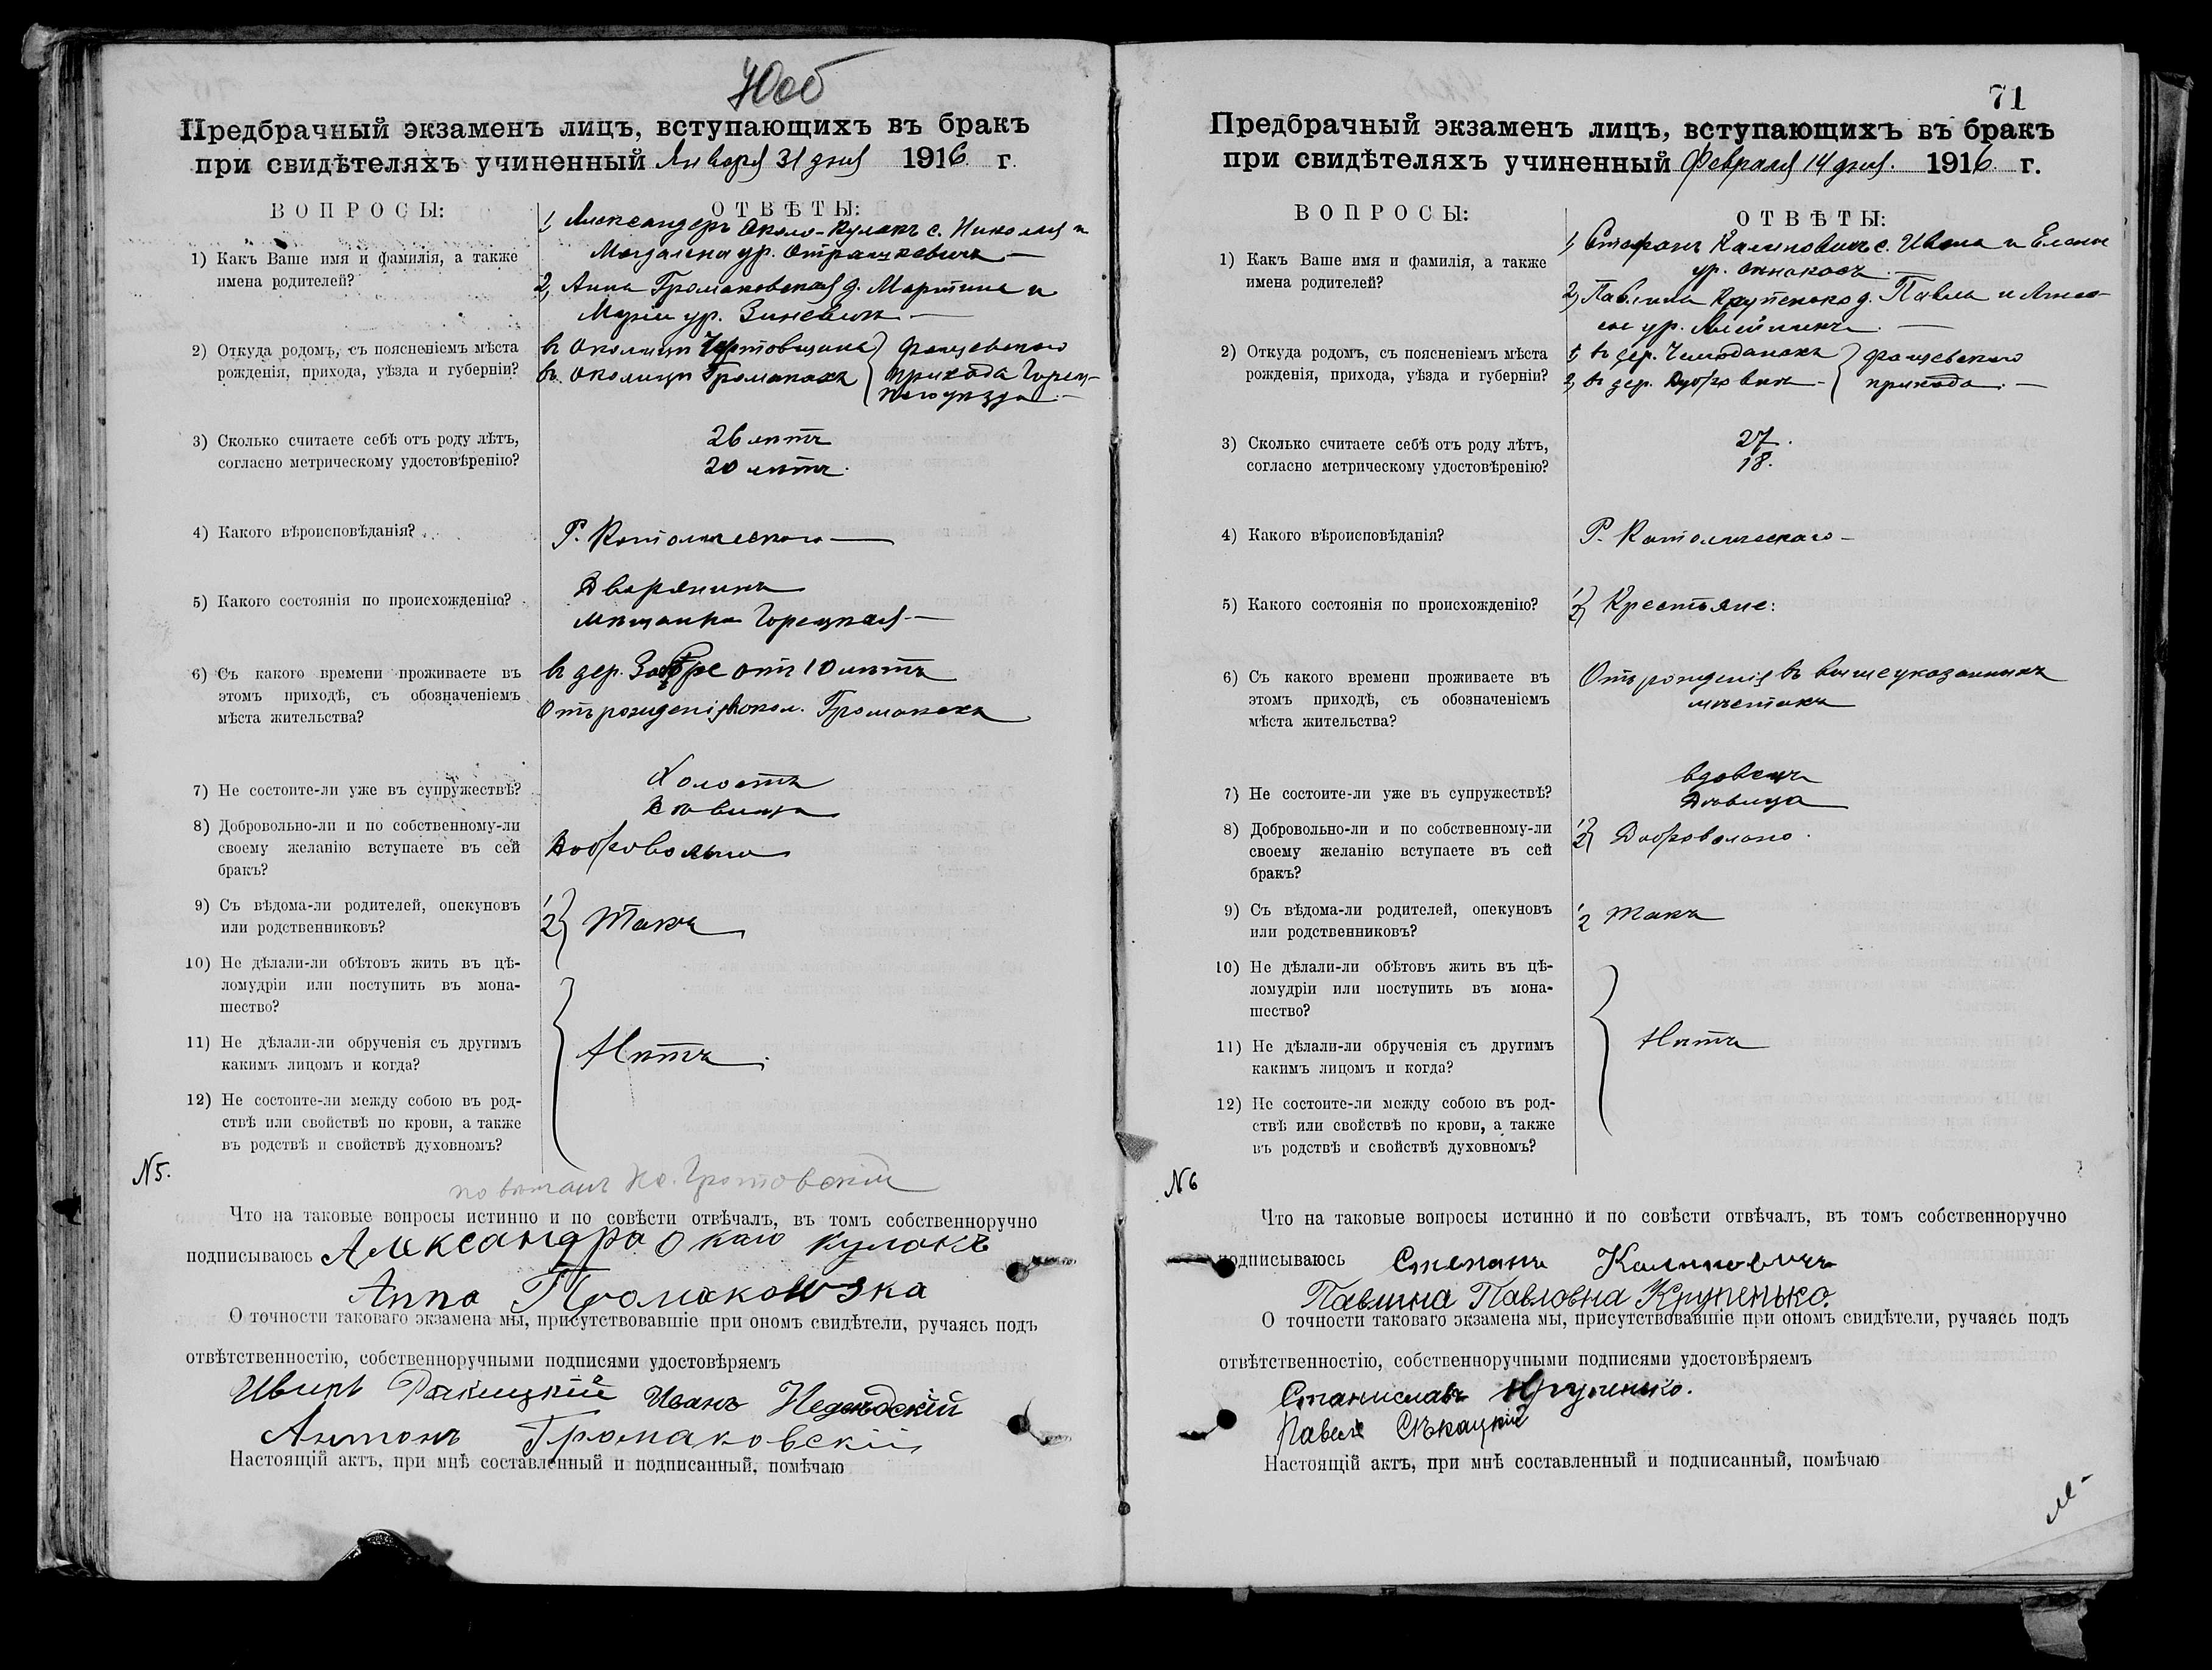 70об
Предбрачный экзаменъ лицъ, вступающихъ въ бракъ
при свидѣтеляхъ учиненный Января 31 дня 1916 г.
ВОПРОСЫ:
ОТВѢТЫ:
1) Какъ Ваше имя и фамилія, а также
имена родителей?
1, Александеръ Около-Кулакъ с. Николая и
Магдалена ур.
2, Анна Громаковская д. Мартина и
Марiи ур. Зиневичъ
2) Откуда родомъ, съ поясненіемъ мѣста
рожденія, прихода, уѣзда и губерніи?
въ околицы Чертовщина } Фащевскаго
въ околицы Громакахъ } прихода Горец-
каго уѣзда
3) Сколько считаете себѣ отъ роду лѣтъ,
согласно метрическому удостовѣренію?
26 лѣтъ
20 лѣтъ.
4) Какого вѣроисповѣданія?
Р. Католическаго
5) Какого состоянія по происхожденію?
Дворянинъ
мѣщанка Горецкая
6) Съ какого времени проживаете въ
этомъ приходѣ, съ обозначеніемъ
мѣста жительства?
въ дер. отъ 10 лѣтъ
Отъ рожденія въ окол. Громакахъ
7) Не состоите-ли уже въ супружествѣ?
Холостъ
Дѣвица
8) Добровольно-ли и по собственному-ли
своему желанію вступаете въ сей
бракъ?
Добровольно
9) Съ вѣдома-ли родителей, опекуновъ
или родственниковъ?
1 2 } Такъ
10) Не дѣлали-ли обѣтовъ жить въ цѣ-
ломудріи или поступить въ мона-
шество?
11) Не дѣлали-ли обрученія съ другимъ
какимъ лицомъ и когда?
12) Не состоите-ли между собою въ род-
ствѣ или свойствѣ по крови, а также
въ родствѣ и свойствѣ духовномъ?
Нѣтъ.
N 5.
Что на таковые вопросы истинно и по совѣсти отвѣчалъ, въ томъ собственноручно
подписываюсь Александра Окало Кулакъ
Anna Громакоwska
О точности таковаго экзамена мы, присутствовавшіе при ономъ свидѣтели, ручаясь подъ
отвѣтственностію, собственноручными подписями удостовѣряемъ
Иванъ
Антонъ Громаковскій
Настоящій актъ, при мнѣ составленный и подписанный, помѣчаю
71
Предбрачный экзаменъ лицъ, вступающихъ въ бракъ
при свидѣтеляхъ учиненный Февраля 14 дня. 1916 г.
ВОПРОСЫ:
ОТВѢТЫ:
1) Какъ Ваше имя и фамилія, а также
имена родителей?
1, Стефанъ Калиновичъ с. Ивана и Елены
ур.
2, Павлина Крупенько д. Павла и
ур.
2) Откуда родомъ, съ поясненіемъ мѣста
рожденія, прихода, уѣзда и губерніи?
1, въ дер. Чемоданахъ } Фащевскаго
2, въ дер. Дубровкѣ } прихода.
3) Сколько считаете себѣ отъ роду лѣтъ,
согласно метрическому удостовѣренію?
27.
18.
4) Какого вѣроисповѣданія?
Р. Католическаго
5) Какого состоянія по происхожденію?
1 2 } Крестьяне:
6) Съ какого времени проживаете въ
этомъ приходѣ, съ обозначеніемъ
мѣста жительства?
Отъ рожденія въ вышеуказанныхъ
мѣстахъ
7) Не состоите-ли уже въ супружествѣ?
вдовецъ
Дѣвица
8) Добровольно-ли и по собственному-ли
своему желанію вступаете въ сей
бракъ?
1 2 } Добровольно.
9) Съ вѣдома-ли родителей, опекуновъ
или родственниковъ?
1 2 Такъ
10) Не дѣлали-ли обѣтовъ жить въ цѣ-
ломудріи или поступить въ мона-
шество?
11) Не дѣлали-ли обрученія съ другимъ
какимъ лицомъ и когда?
12) Не состоите-ли между собою въ род-
ствѣ или свойствѣ по крови, а также
въ родствѣ и свойствѣ духовномъ?
Нѣтъ
N 6
Что на таковые вопросы истинно и по совѣсти отвѣчалъ, въ томъ собственноручно
подписываюсь Степанъ Калиновичъ
Павлина Павловна Крупенько.
О точности таковаго экзамена мы, присутствовавшіе при ономъ свидѣтели, ручаясь подъ
отвѣтственностію, собственноручными подписями удостовѣряемъ
Станиславъ Крупенько.
Павелъ Сѣкацкій
Настоящій актъ, при мнѣ составленный и подписанный, помѣчаю